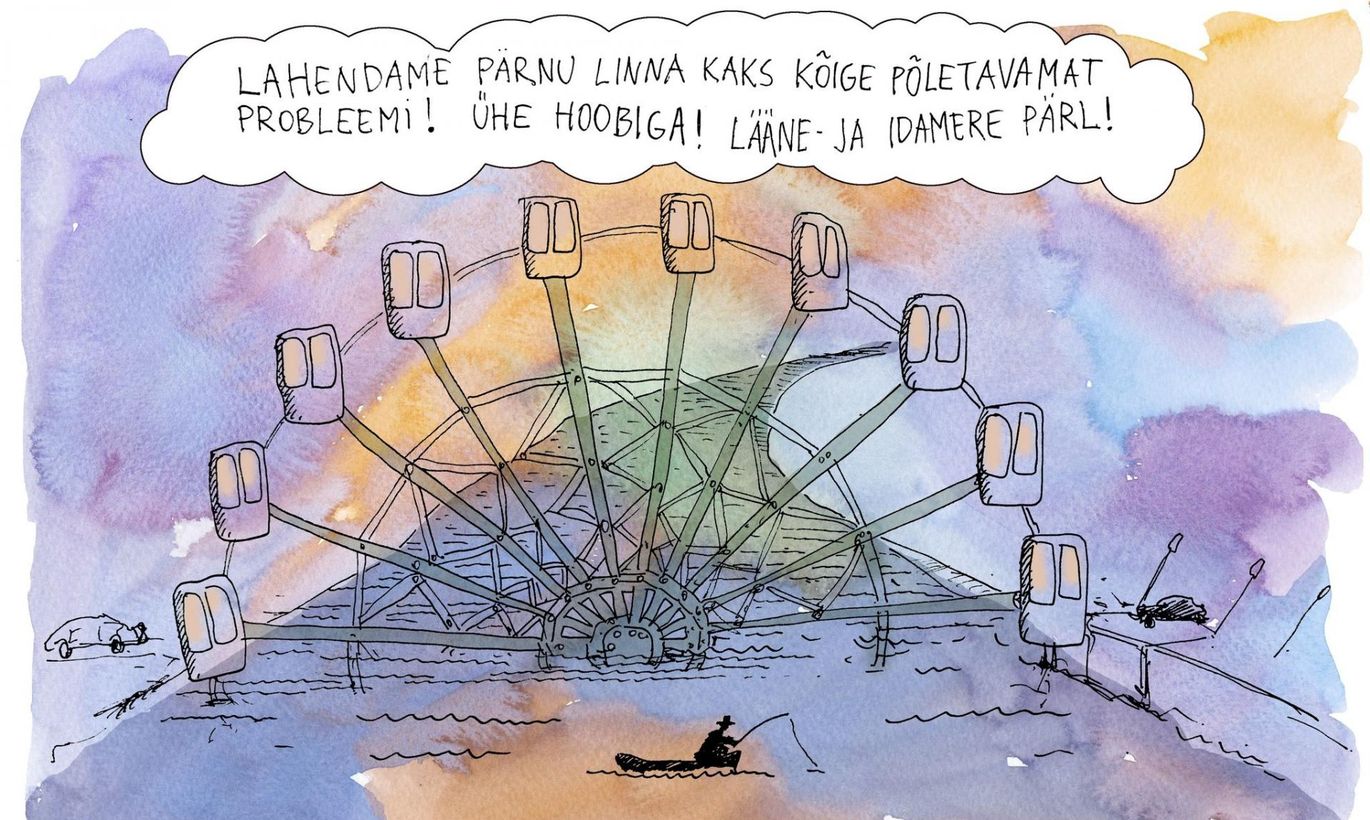 LAHENDAME PÄRNU LINNA KAKS KÕIGE PÕLETAVAMAT
PROBLEEMI! ÜHE HOOBIGA! LÄÄNE- JA IDAMERE PÄRL!